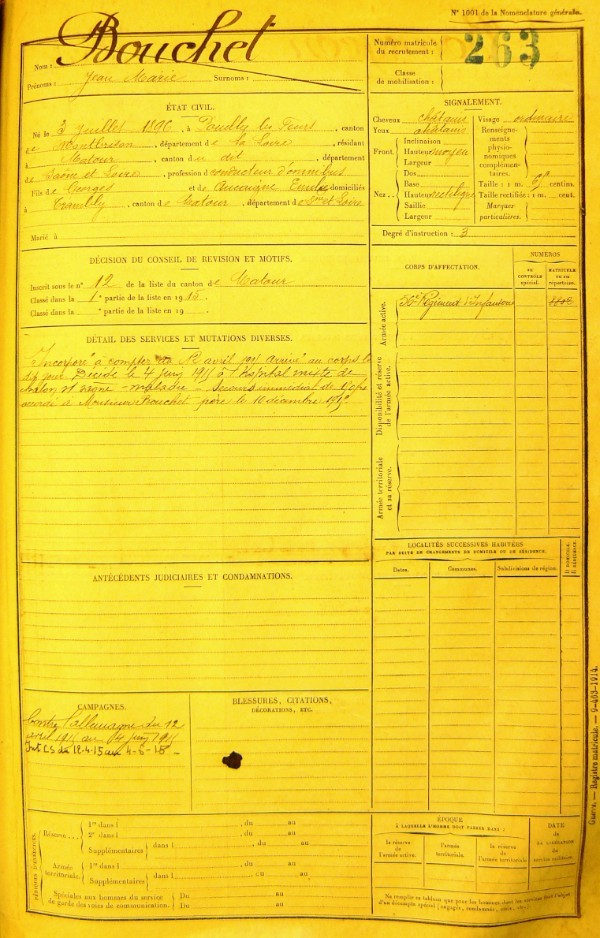 N° 1001 de la Nomenclature générale.
Bouchet
Nom :
Prénoms : Jean Marie Surnoms :
Numéro matricule du recrutement : 263
Classe de mobilisation :
ÉTAT CIVIL.
Né le 3 juillet 1896, à Pouilly les Feurs, canton
de Montbrison, département de la Loire, résidant
à Matour, canton du dit, département
de Saône et Loire, profession de conducteur d'omnibus
Fils de Georges et de domiciliés
à Trambly, canton de Matour, département de Saône et Loire
Marié à
SIGNALEMENT.
Cheveux châtain Visage ordinaire
Yeux châtains
Front. Inclinaison
Hauteur moyen
Largeur
Nez. Dos
Base
Hauteur rectiligne
Saillie
Largeur
Renseignements physionomiques complémentaires.
Taille : 1 m. centim.
Taille rectifiée : 1 m. cent.
Marques particulières.
Degré d'instruction : 3
DÉCISION DU CONSEIL DE REVISION ET MOTIFS.
Inscrit sous le n° 12 de la liste du canton de Matour
Classé dans la 1e partie de la liste en 1915
Classé dans la e partie de la liste en 19
CORPS D'AFFECTATION.
NUMÉROS
AU CONTRÔLE spécial.
MATRICULE OU AU répertoire.
Armée active.
56e Régiment d'Infanterie
Disponibilité et réserve de l'armée active.
Armée territoriale et sa réserve.
DÉTAIL DES SERVICES ET MUTATIONS DIVERSES.
Incorporé à compter du 12 avril 1915 arrivé au corps le
dit jour. Décédé le 4 juin 1915 à l'hôpital mixte de
Chalon s/ Saône - maladie - Secours immédiat de
accordé à Monsieur Bouchet père le 10 décembre 1915
LOCALITÉS SUCCESSIVES HABITÉES
PAR SUITE DE CHANGEMENTS DE DOMICILE OU DE RÉSIDENCE.
Dates. Communes. Subdivisions de région. D DOMICILE. R RÉSIDENCE.
ANTÉCÉDENTS JUDICIAIRES ET CONDAMNATIONS.
CAMPAGNES.
Contre l'allemagne du 12
avril 1915 au 04 juin 1915
Int CS du 12.4.15 au 4-6-15
BLESSURES, CITATIONS,
DÉCORATIONS, ETC.
PÉRIODES D'EXERCICES.
Réserve
1re dans l , du au
2e dans l , du au
Supplémentaires dans l , du au
Armée territoriale.
1re dans l , du au
Supplémentaires dans l , du au
Spéciales aux hommes du service de garde des voies de communication. Du au
Du au
ÉPOQUE
À LAQUELLE L'HOMME DOIT PASSER DANS :
la réserve de l'armée active.
l'armée territoriale.
la réserve de l'armée territoriale.
DATE
de la libération du service militaire.
Guerre. — Registre matricule. — 9-463-1914.